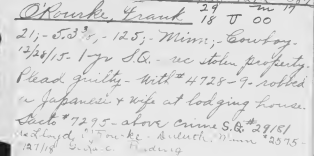 O'Rourke, Frank 29 17
18 U 00
21,- 5.3¾,- 125,- Minn,- Cowboy.-
12/28/15- 1-yr S.Q.- rec stolen property.
Plead guilty.- With #4728-9- robbed
a Japanese & wife at lodging house.
Sac'to #7295- above crime S.Q. #29181
Duluth, Minn #2575-